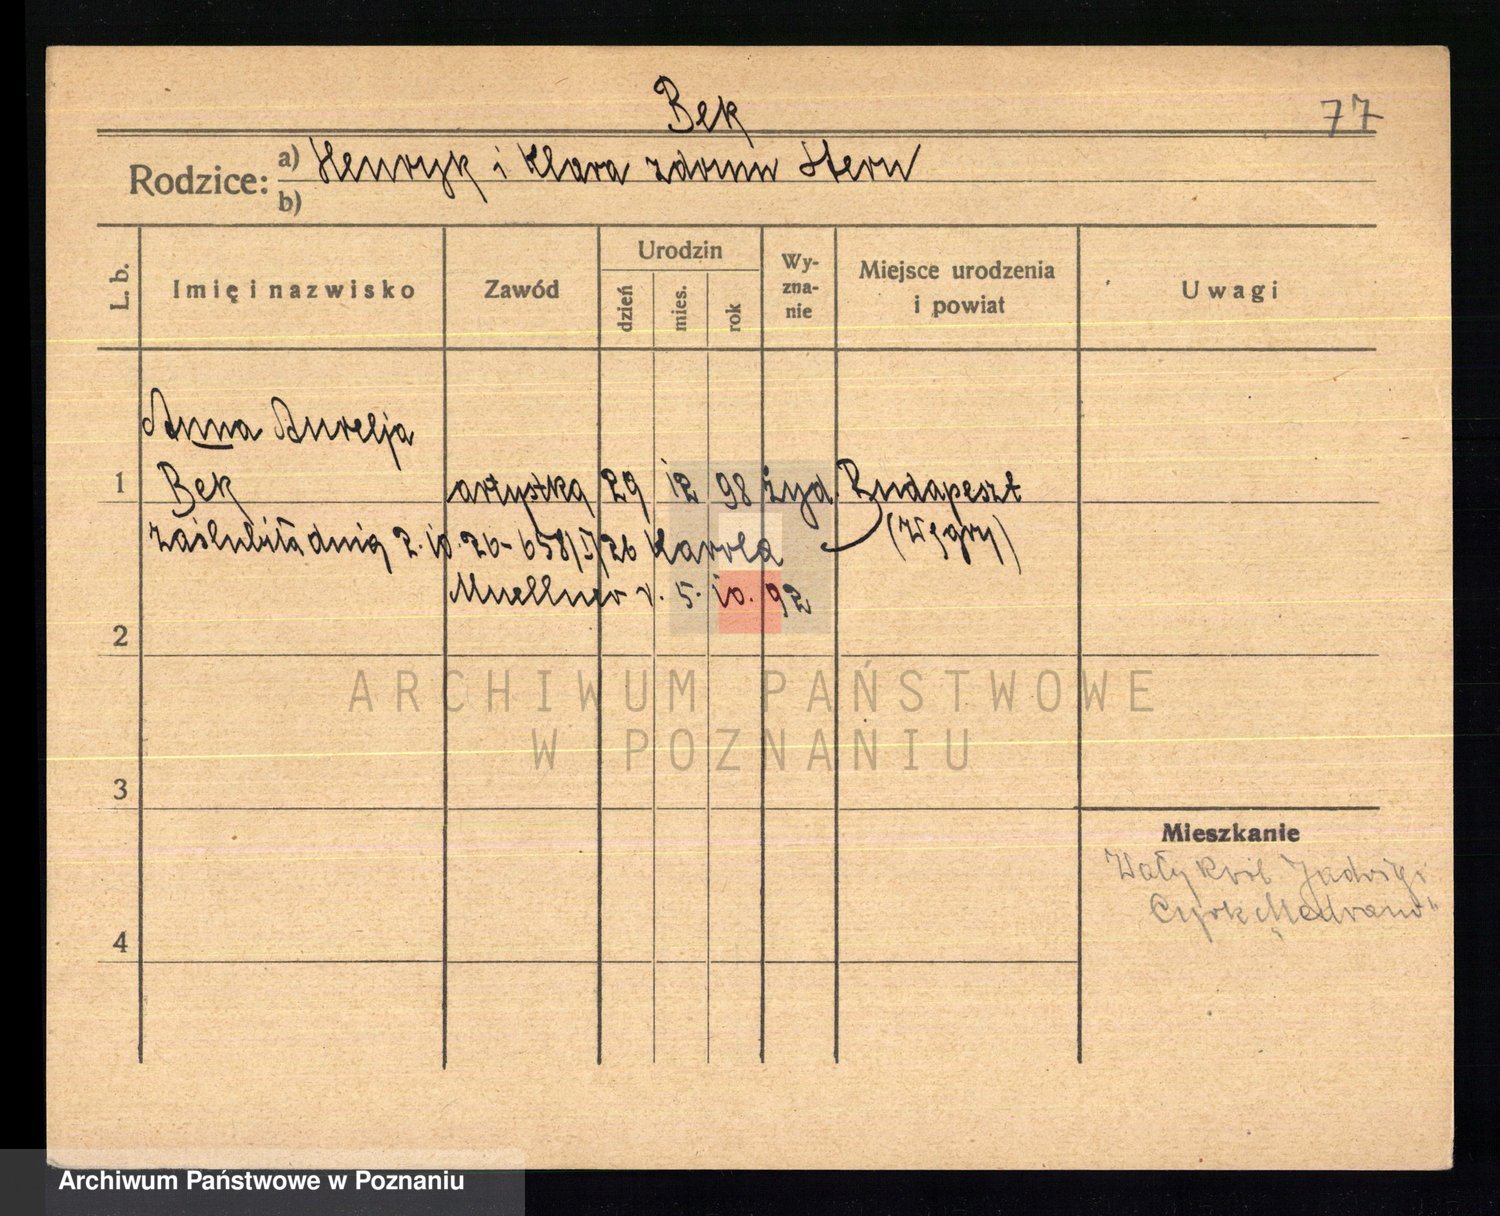 Bek
77
Rodzice: a) Henryk i Klara zdomu Stern
b)
L. b.
Imię i nazwisko
Zawód
Urodzin
dzień
mies.
rok
Wy-
zna-
nie
Miejsce urodzenia
i powiat
Uwagi
Anna Aurelja
1 Bek artystka 29 12 98 żyd Budapeszt
(Węgry)
zaślubiła dnia 2. 10. 26 - 658/I/26 Karola
Muellner r. 5. 10. 92
2
3
4
Mieszkanie
Wały Król Jadwigi
Cyrk „Medrano"
ARCHIWUM PAŃSTWOWE
W POZNANIU
Archiwum Państwowe w Poznaniu